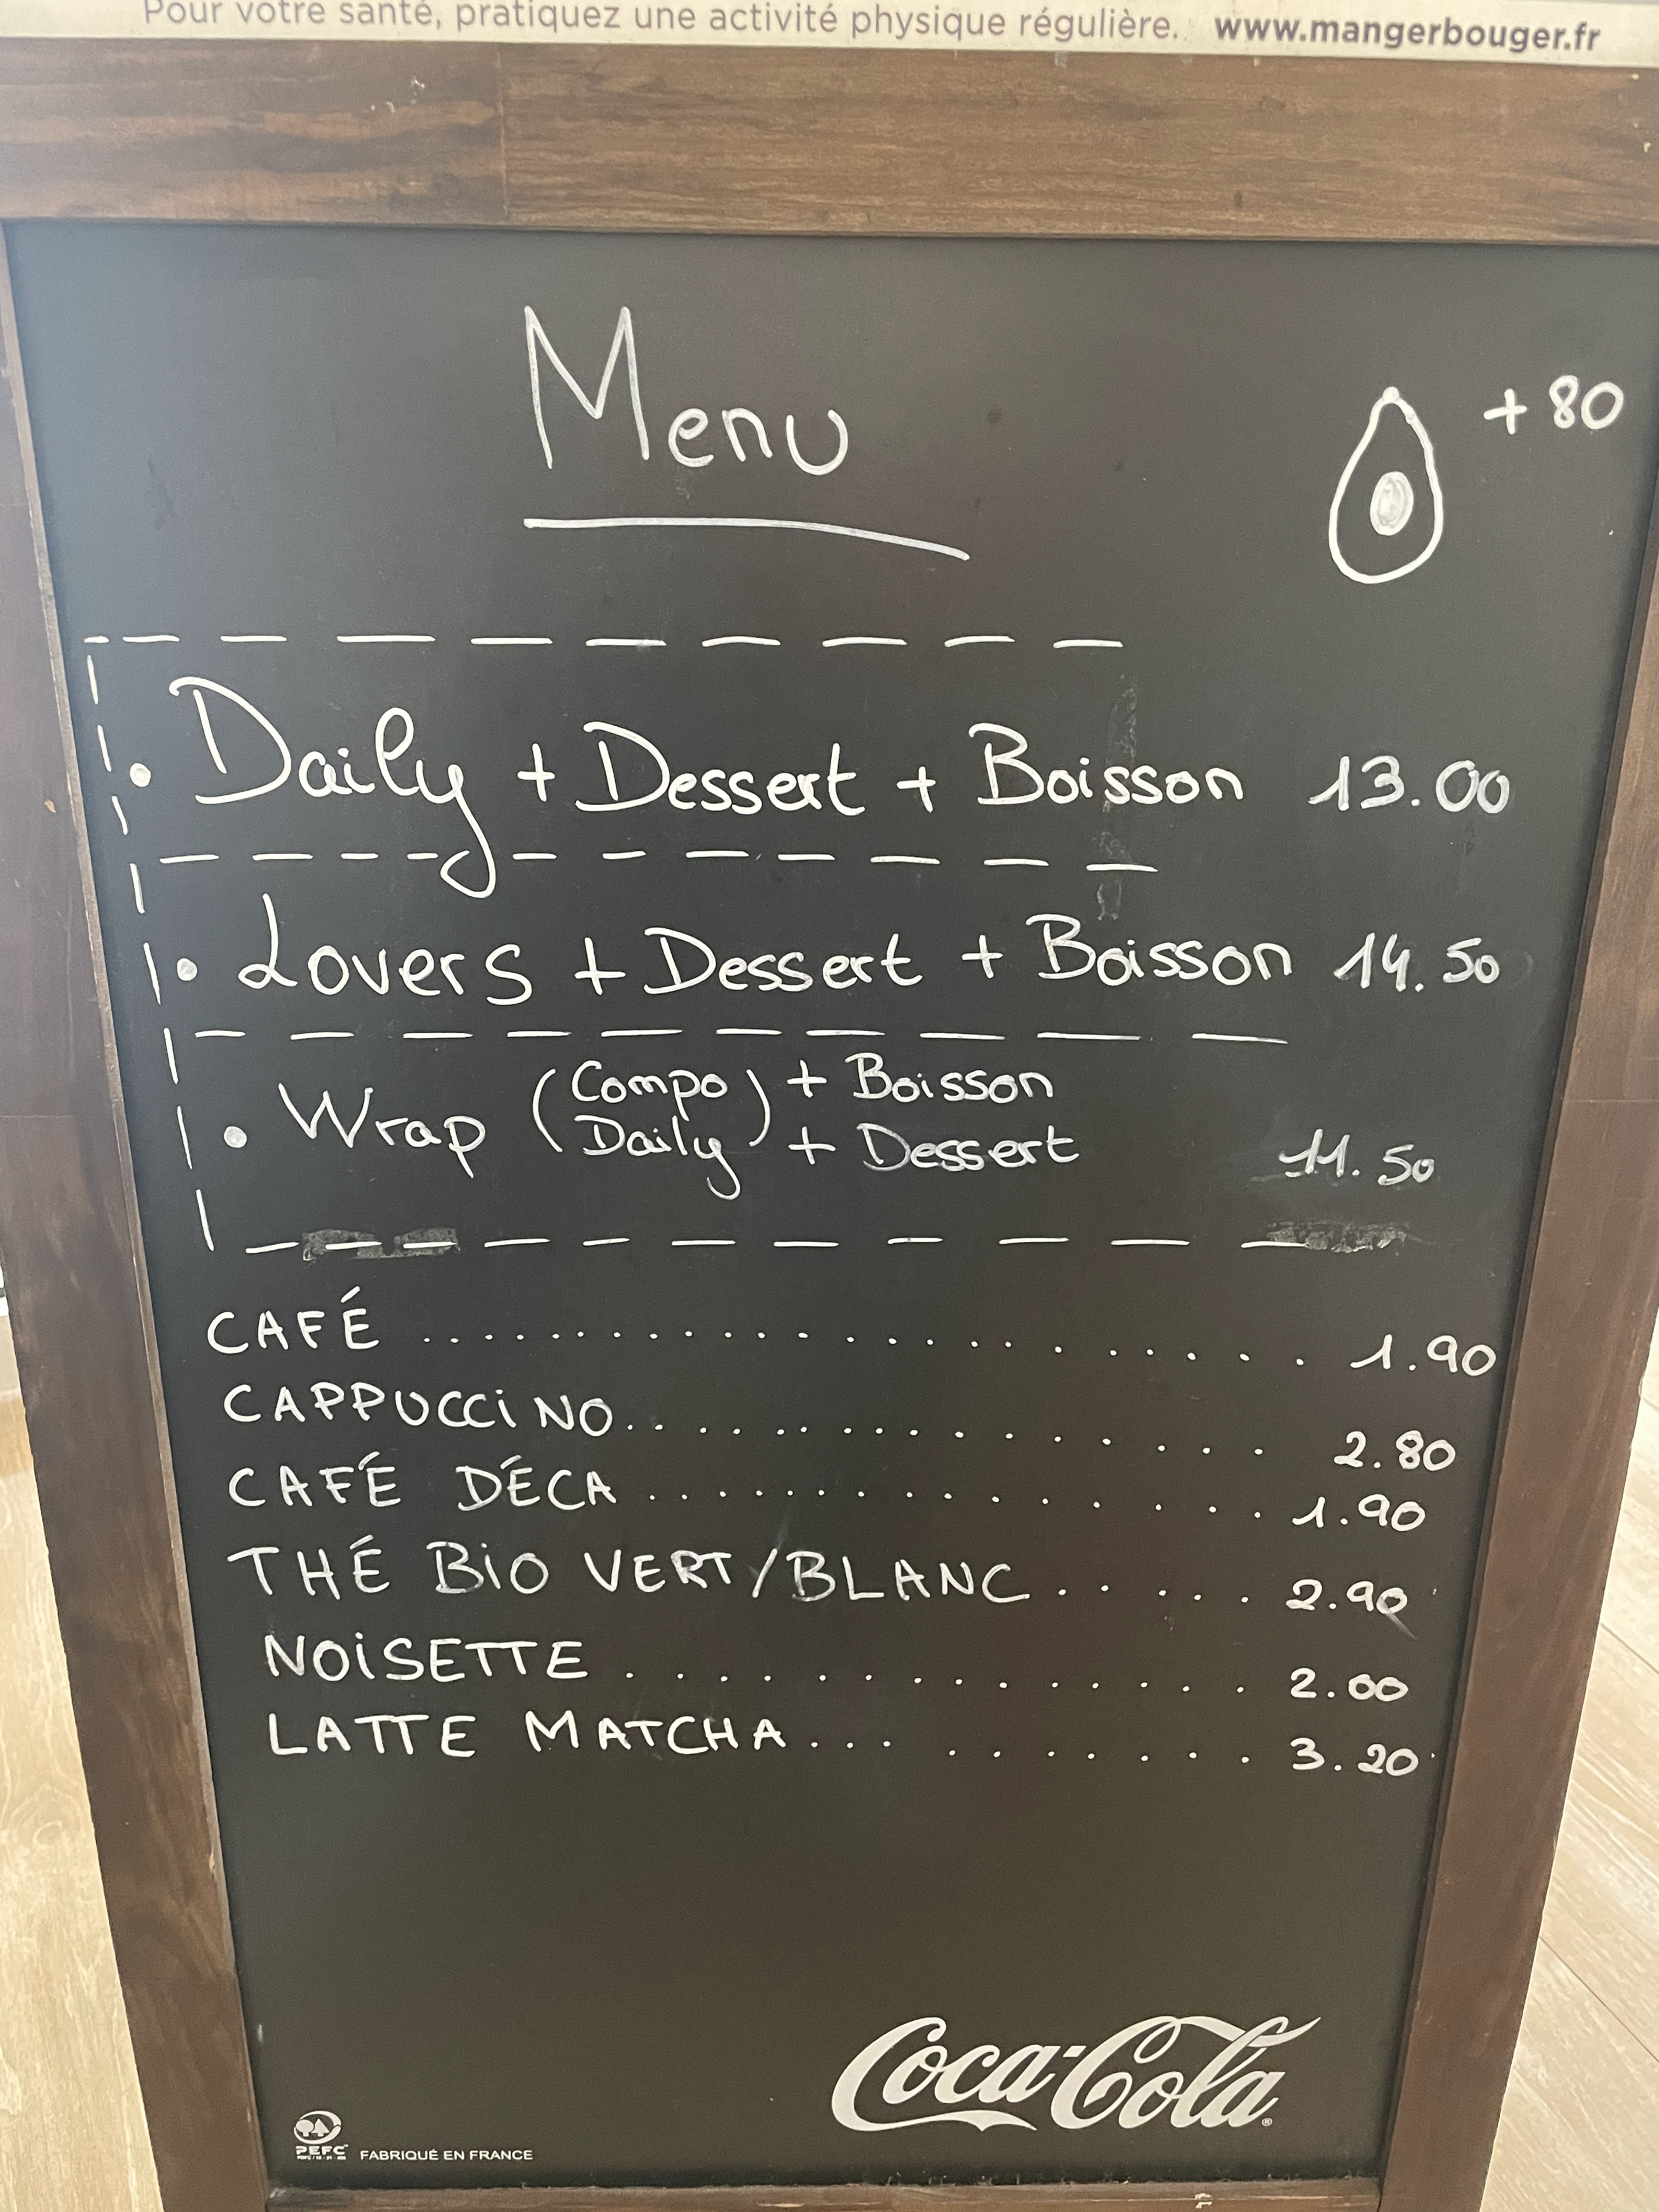 Pour votre santé, pratiquez une activité physique régulière. www.mangerbouger.fr
Menu
+ 80
• Daily + Dessert + Boisson 13.00
• Lovers + Dessert + Boisson 14.50
• Wrap (Compo Daily) + Boisson
+ Dessert 11.50
CAFÉ .......................... 1.90
CAPPUCCiNO.................. 2.80
CAFÉ DÉCA ................... 1.90
THÉ BiO VERT/BLANC..... 2.90
NOiSETTE .............. 2.00
LATTE MATCHA.......... 3.20
Coca-Cola
PEFC FABRIQUÉ EN FRANCE